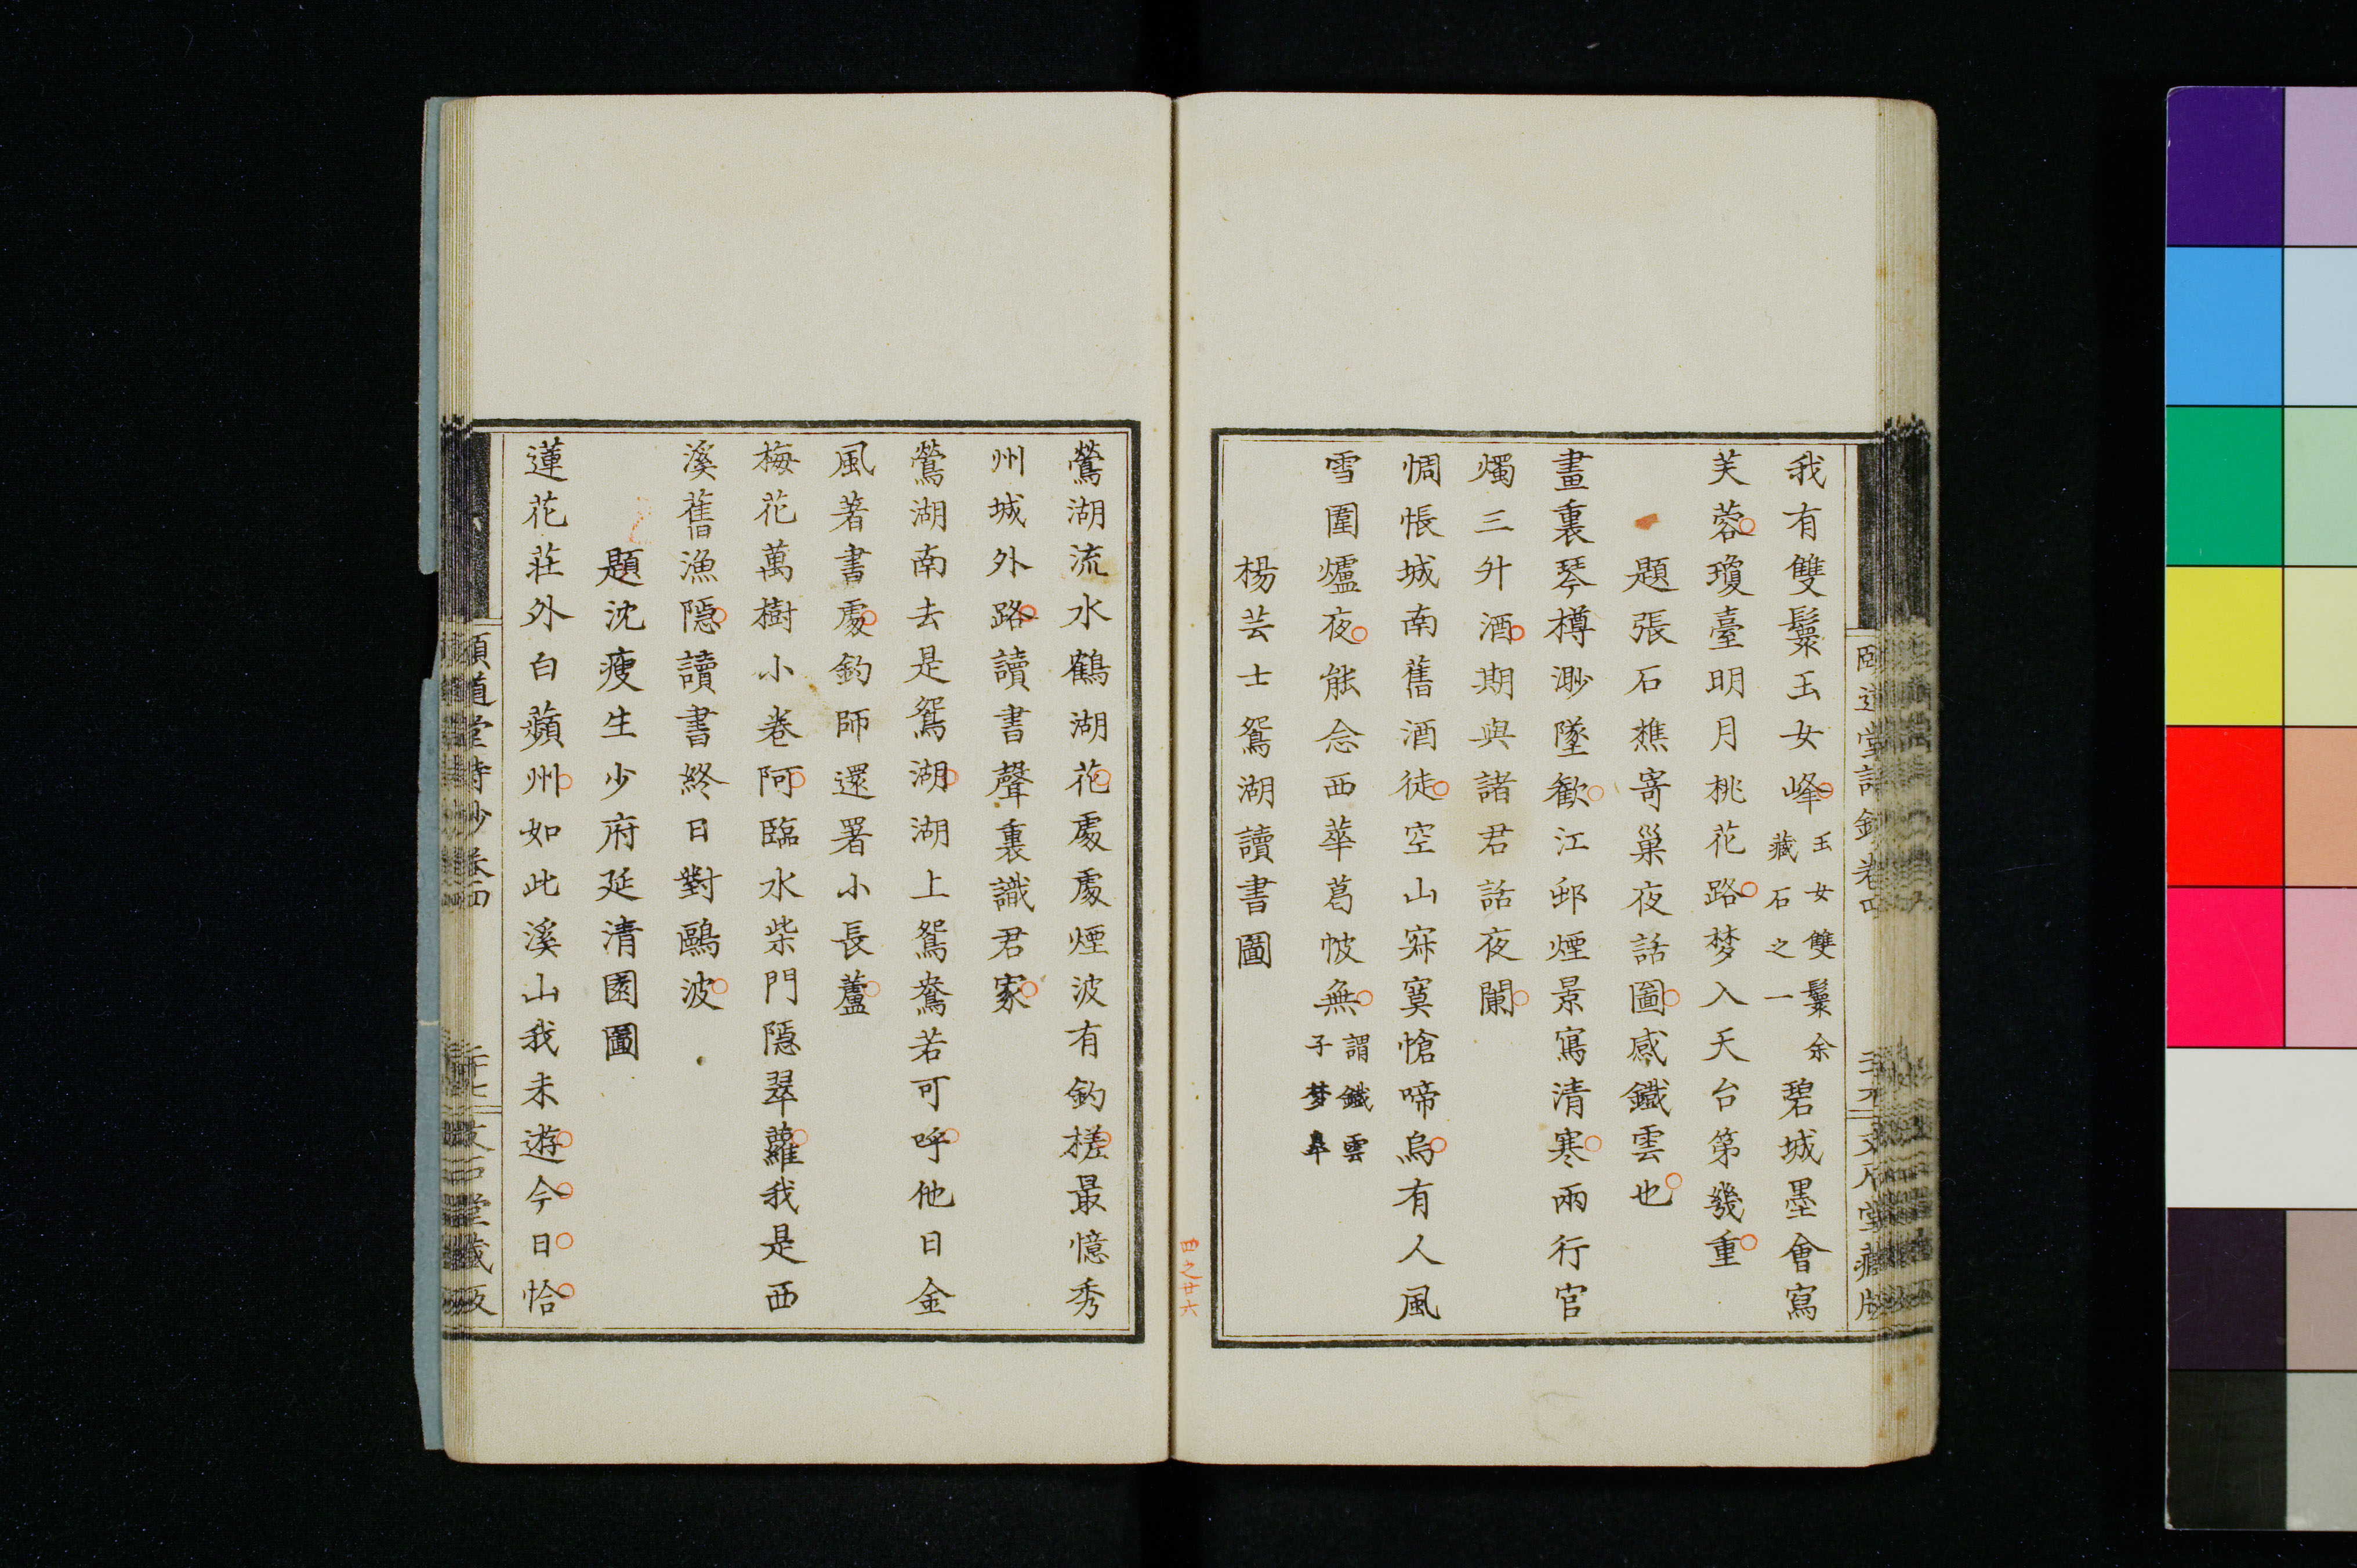 我有雙鬟玉女峰玉女雙鬟余藏石之一碧城墨會寫
芙蓉瓊臺明月桃花路梦入天台第幾重
題張石樵寄巢夜話圖感鐵雲也
畫裏琴樽渺墜歡江邨煙景寫清寒兩行官
燭三升酒期與諸君話夜闌
惆悵城南舊酒徒空山寂寞愴啼烏有人風
雪圍爐夜能念西華葛帔無謂鐵雲子梦皋
楊芸士鴛湖讀書圖
四之廿六
鶯湖流水鶴湖花處處煙波有釣槎最憶秀
州城外路讀書聲裏識君家
鶯湖南去是鴛湖湖上鴛鴦若可呼他日金
風著書處釣師還署小長蘆
梅花萬樹小巷阿臨水柴門隱翠蘿我是西
溪舊漁隱讀書終日對鷗波
題沈瘦生少府延清園圖
蓮花莊外白蘋州如此溪山我未遊今日恰
頤道堂詩鈔卷四
文石堂藏版